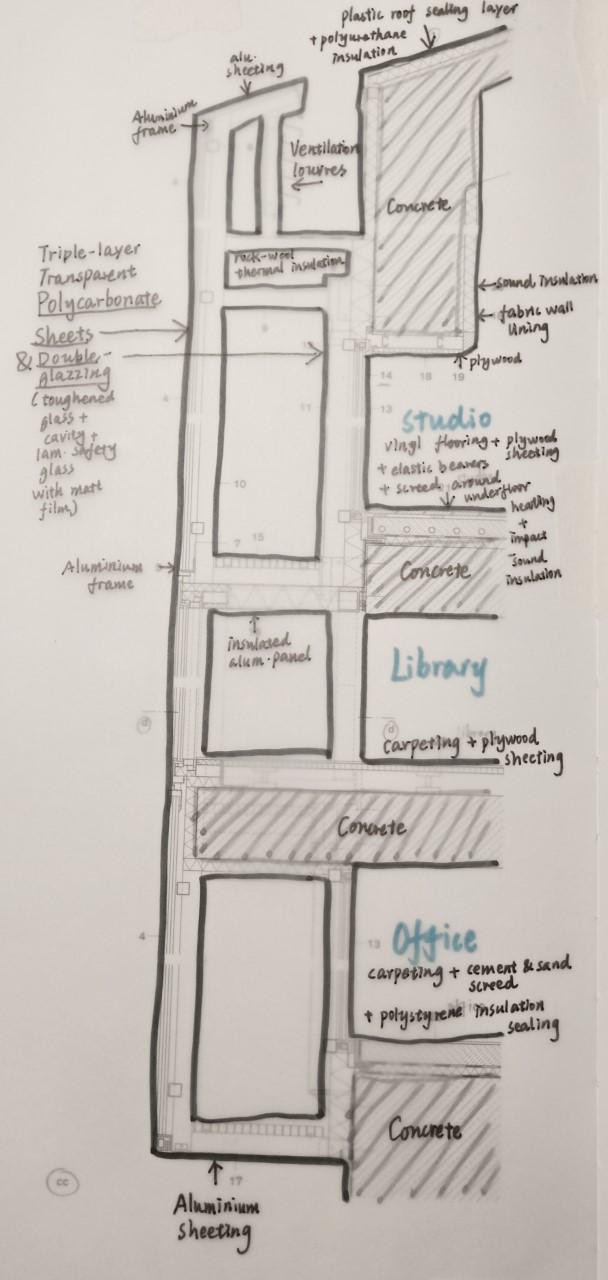 plastic roof sealing layer
+ polyurethane
insulation
alu.
sheeting
Aluminium
frame
Ventilation
louvres
Concrete
rock-wool
thermal insulation
Triple-layer
Transparent
Polycarbonate
Sheets
& Double-
glazzing
(toughened
glass +
cavity +
lam. safety
glass
with matt
film)
sound insulation
fabric wall
lining
plywood
14
18
19
4
11
13
10
7
15
Studio
vinyl flooring + plywood
sheeting
+ elastic bearers
+ screed around
underfloor
heating
+
impact
sound
insulation
Concrete
Aluminium
frame
insulated
alum. panel
Library
d
d
carpeting + plywood
sheeting
Concrete
4
13
Office
carpeting + cement & sand
screed
+ polystyrene insulation
sealing
Concrete
cc
17
Aluminium
sheeting